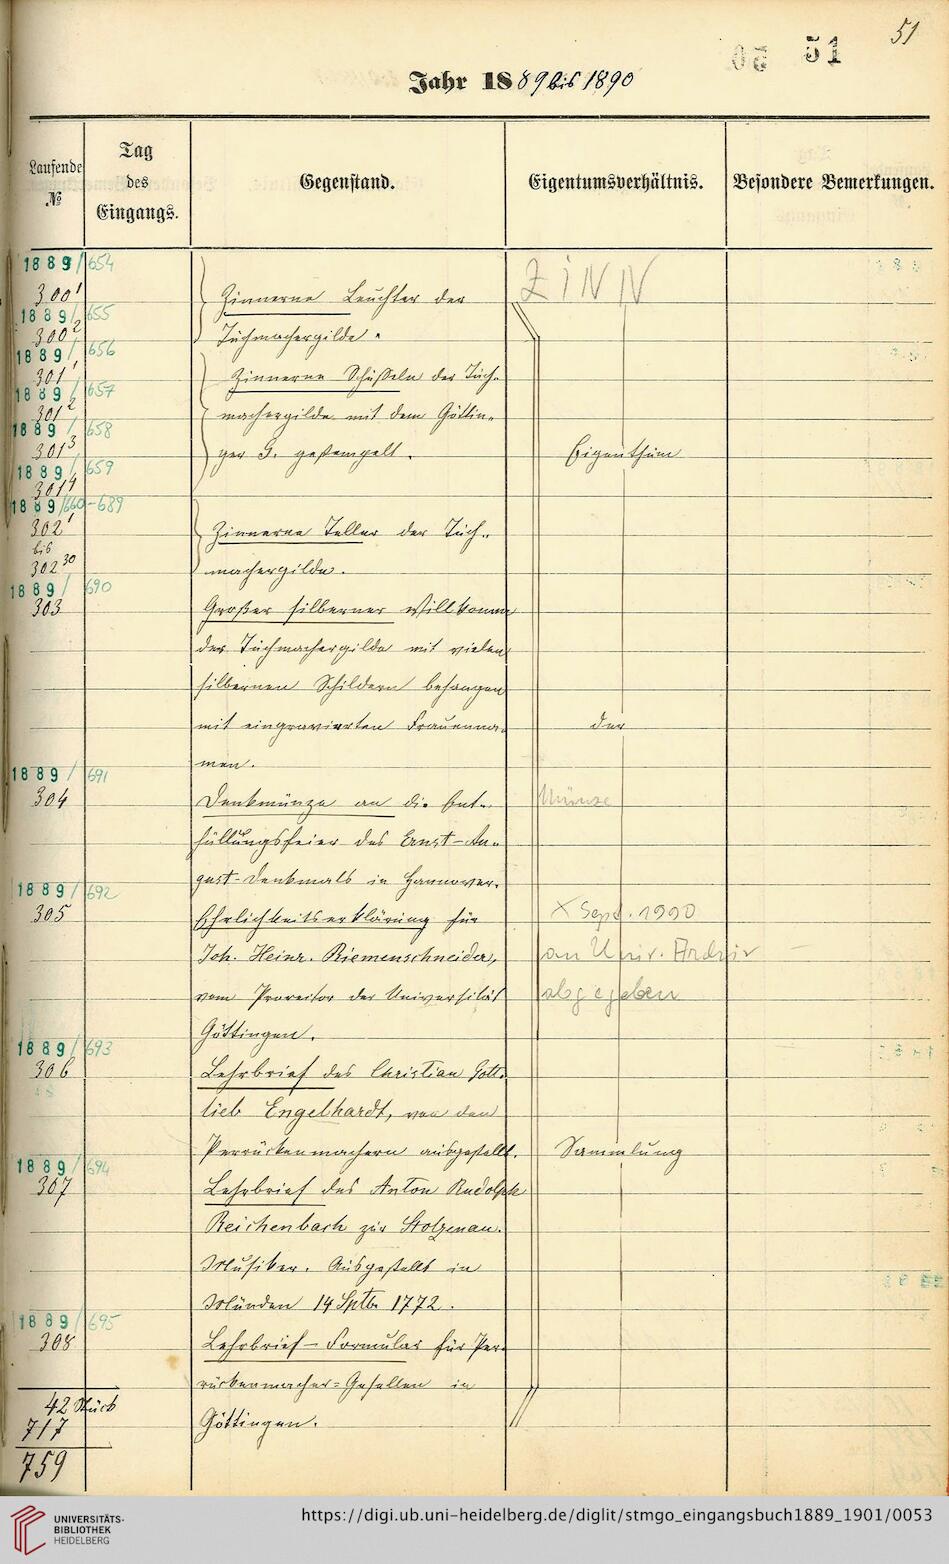 51
05 51
Jahr 1889 bis 1890
Laufende № | Tag des Eingangs. | Gegenstand. | Eigentumsverhältnis. | Besondere Bemerkungen.
1889/654
300¹ Zinnerne Leuchter der ZINN
1889/655
300² Tuchmachergilde.
1889/656
301¹ Zinnerne Schüsseln der Tuch-
1889/657
301² machergilde mit dem Göttin-
1889/658
301³ ger G. gestempelt. Eigenthum
1889/659
301⁴
1889/660-689
302¹ Zinnerne Teller der Tuch-
bis
302³⁰ machergilde.
1889/690
303 Großer silberner Willkomm
der Tuchmachergilde mit vielen
silbernen Schildern behangen
mit eingravierten Frauenna- der
men.
1889/691
304 Denkmünze an die Ent- Münze
hüllungsfeier des Ernst-Au-
gust-Denkmals in Hannover.
1889/692
305 Ehrlichkeitserklärung für X Sept. 1990
Joh. Heinr. Riemenschneider, an Univ. Archiv
vom Prorector der Universität abgegeben
Göttingen.
1889/693
306 Lehrbrief des Christian Gott-
lieb Engelhardt, von den
Perrückenmachern ausgestellt. Sammlung
1889/694
307 Lehrbrief des Anton Rudolph
Reichenbach zu Stolzenau.
Musiker. Ausgestellt in
Münden 14 Sptb. 1772.
1889/695
308 Lehrbrief-Formular für Per-
rückenmacher-Gesellen in
42 Stück
717 Göttingen.
759
UNIVERSITÄTS-
BIBLIOTHEK
HEIDELBERG
https://digi.ub.uni-heidelberg.de/diglit/stmgo_eingangsbuch1889_1901/0053